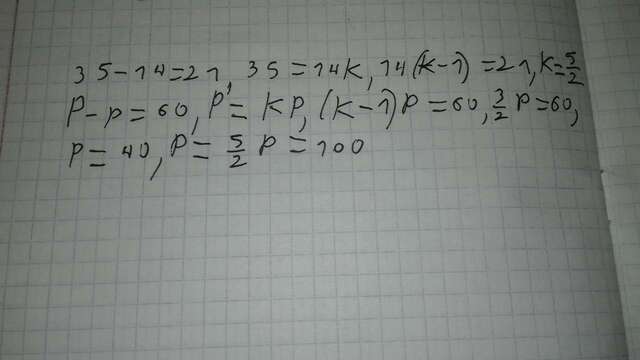 35-14=21, 35=14K, 14(K-1)=21, K=5/2
P-p=60, P'=KP, (K-1)P=60, 3/2 P=60,
P=40, P=5/2 P=100